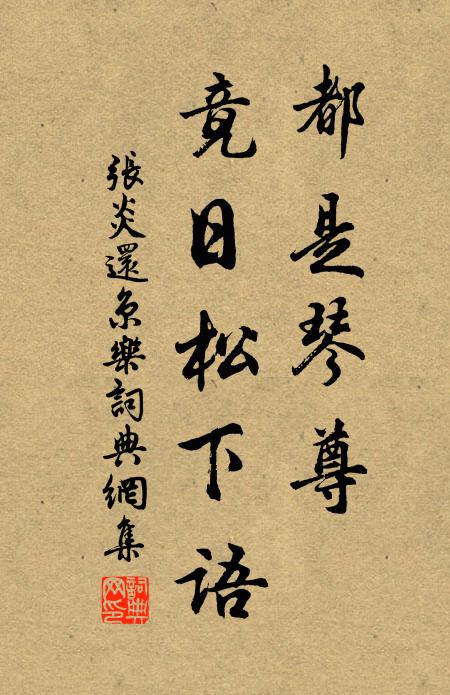 都是琴尊
竟日松下語
張炎還京樂詞典網集
詞典网印